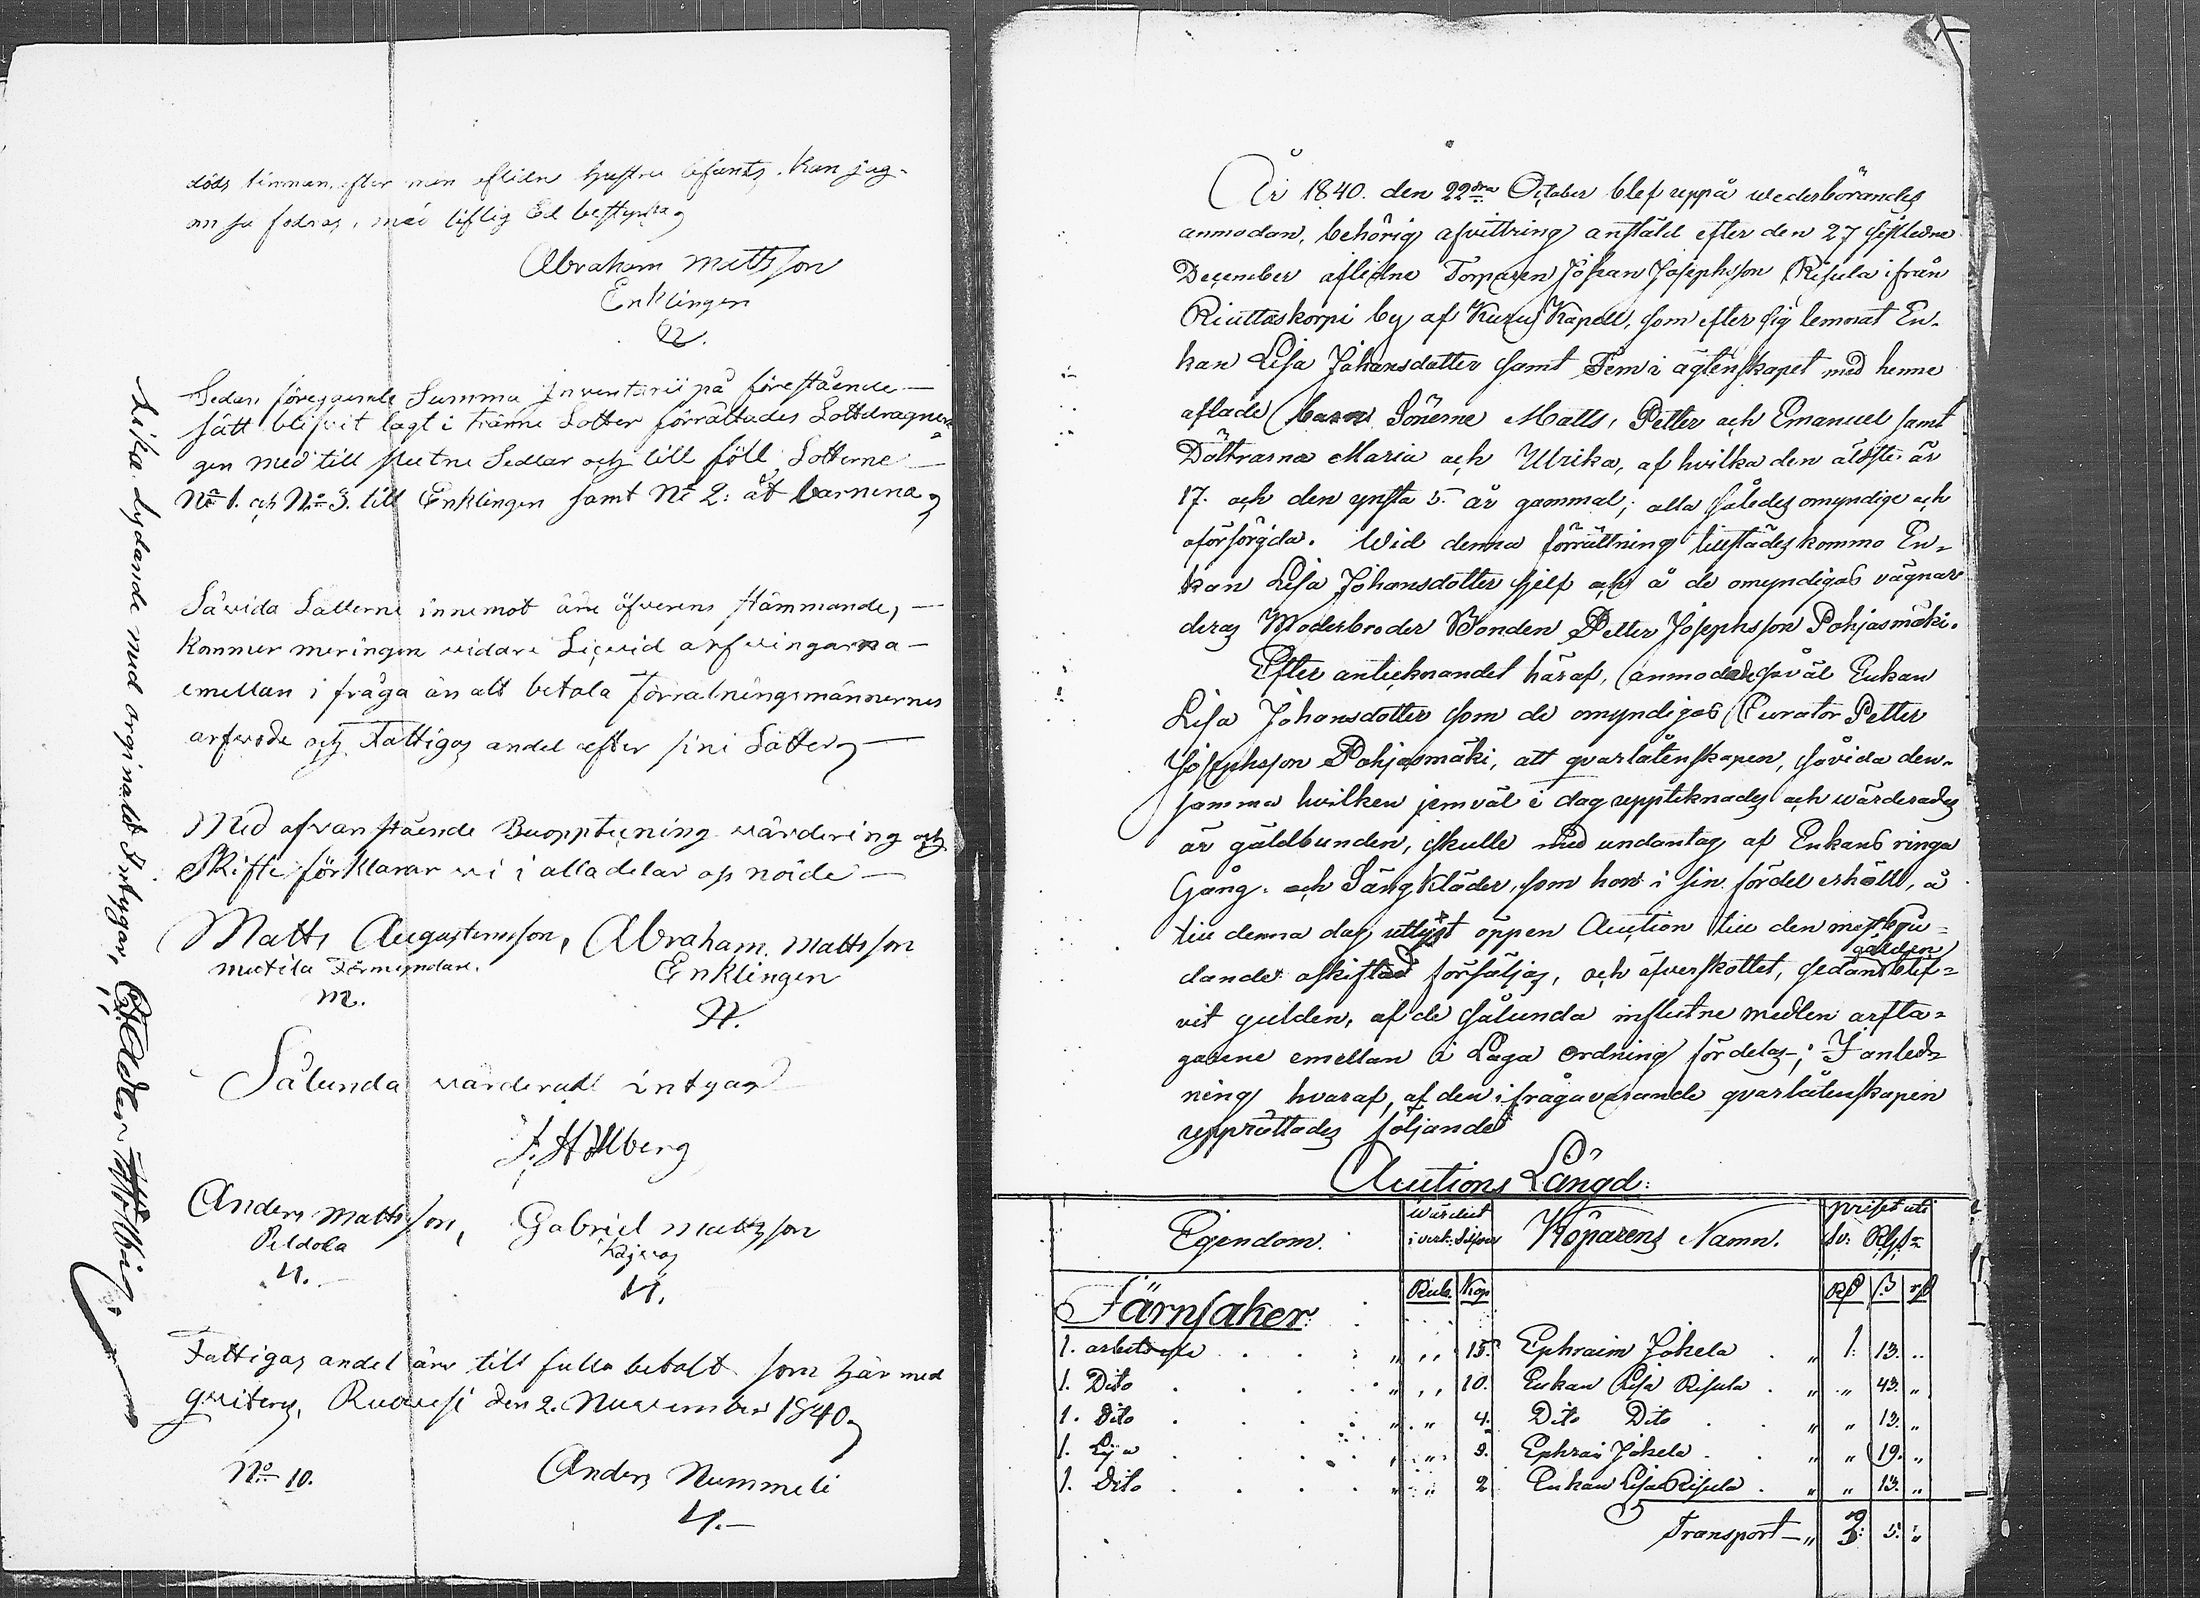 döds timman, efter min aflidne hustru befants. kan jag
om så fodras, med liflig Ed bestyrka
Abraham Mattsson
Enklingen
Sedan föregående Summa Inventarii på förestående
sätt blifvit lagt i tränne Lotter förrättades Lottdragnin
gen med till slutne Sedlar och till föll Lotterne
No 1. och No 3. till Enklingen samt No 2: åt barnena
Såvida Lotterne innemot äro öfverens stämmande,
kommer meringen vidare Liqvid arfvingarna
emellan i fråga än att betala Förrätningsmännernes
arfvode och Fattigas andel efter sine Lotter
Med ofvanstående Bouppteckning värdering och
Skifte förklarar vi i alla delar os nöide
Matts Augustinsson, Abraham Mattsson
Förmyndare. Enklingen
m.
Sålunda värderadt intygar
Anders Mattsson, Gabriel Mattsson
Pildola
Fattigas andel äro till fullo betalt som här med
qviteras, Ruovesi den 2. November 1840
No 10. Anders Nummeli
Lika lydande med orginalet Intygar,
År 1840. den 22dra October blef uppå wederbörandes
anmodan, behörig afvittring anstäld efter den 27 sistledne
December aflidne Torparen Johan Josephsson Risula ifrån
Riuttaskorpi by af Kuru Kapell, som efter sig lemnat En-
kan Lisa Johansdotter samt Fem i ägtenskapet med henne
aflade barn Sönerne Matts, Petter och Emanuel samt
Döttrarna Maria och Ulrika, af hvilka den äldste är
17. och den yngsta 5. år gammal; alla således omyndige och
oförsörgda. Wid denna förrättning tillstädes kommo En-
kan Lisa Johansdotter sjelf och å de omyndigas vägnar
deras Moderbroder Bonden Petter Josephsson Pohjasmäki.
Efter antecknandet häraf, anmodade såväl Enkan
Lisa Johansdotter som de omyndigas Curator Petter
Josephsson Pohjasmäki, att qvarlåtenskapen, såvida den-
samma hvilken jemväl i dag uppteknades och wärderades
är gäldbunden, skulle med undantag af Enkans ringa
Gång- och Sängkläder, som hon i sin fördel erhöll, å
till denna dag utlyst öppen Auction till den mestbju-
gälden
dande oskiftad försäljas, och öfverskottet, sedan blif-
vit gulden, af de sålunda influtne medlen arfta-
garene emellan i Laga ordning fördelas; I anled-
ning hvaraf, af den ifrågavarande qvarlåtenskapen
upprättades följande
Auctions Längd:
Egendom. Wärdet i verk: Silfver Köparens Namn. priset uti Sv: Rgs
Rub. Kop
Järnsaker
1. arbetsyxa 15. Ephraim Jokela 1. 13.
1. Dito 10. Enkan Lisa Risula 43.
1. Dito 4. Dito Dito 13.
1. Lija 3. Ephraim Jokela 19.
1. Dito 2 Enkan Lisa Risula 13.
Transport 5.